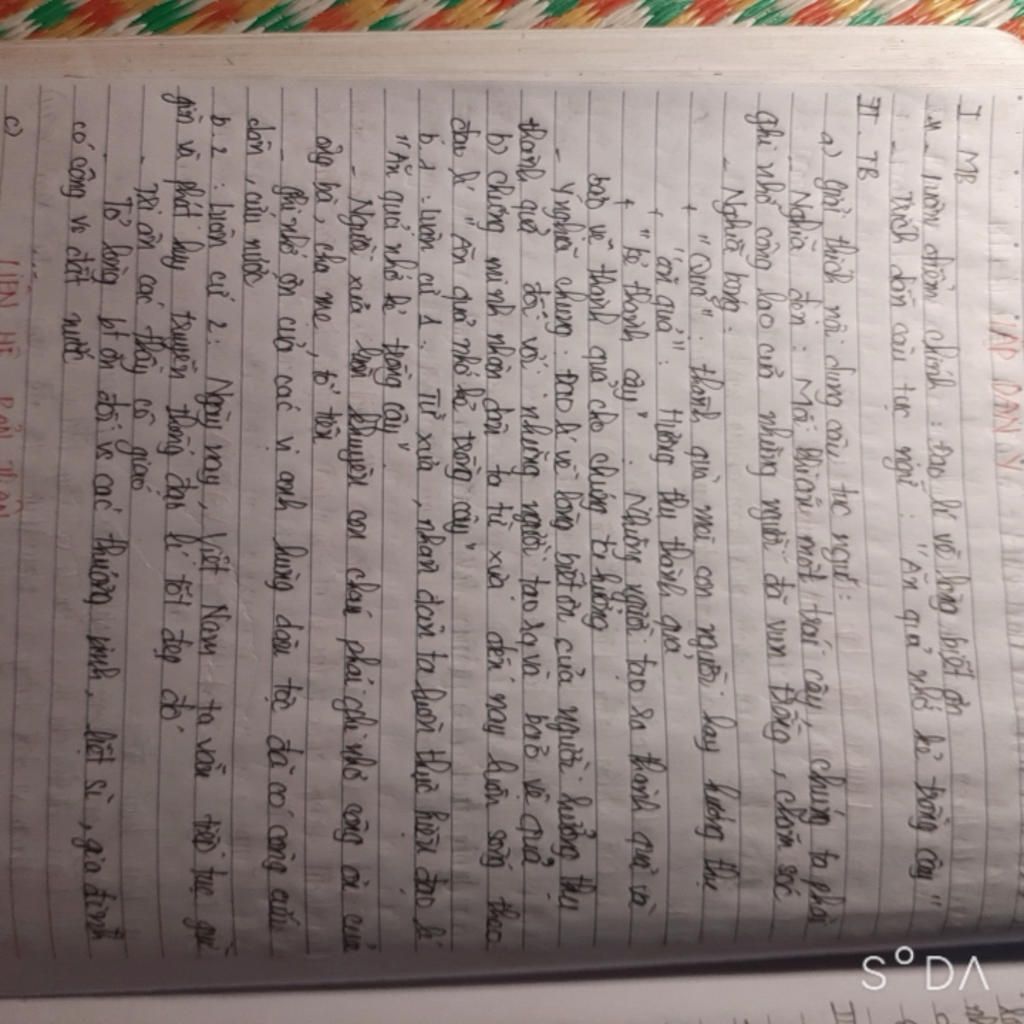 LẬP DÀN Ý
I. MB
- Luận điểm chính: Đạo lí về lòng biết ơn
- Trích dẫn câu tục ngữ: "Ăn quả nhớ kẻ trồng cây"
II. TB
a) giải thích nội dung câu tục ngữ:
- Nghĩa đen: Mỗi khi ăn một trái cây chúng ta phải
ghi nhớ công lao của những người đã vun trồng, chăm sóc
- Nghĩa bóng:
+ "quả": thành quả mà con người hay hưởng thụ
+ "ăn quả": Hưởng thụ thành quả
+ "kẻ trồng cây": Những người tạo ra thành quả và
bảo vệ thành quả cho chúng ta hưởng
- Ý nghĩa chung: Đạo lí về lòng biết ơn của người hưởng thụ
thành quả đối với những người tạo ra và bảo vệ quả
b) chứng minh nhân dân ta từ xưa đến nay luôn sống theo
đạo lí "Ăn quả nhớ kẻ trồng cây"
b.1: luận cứ 1: Từ xưa, nhân dân ta luôn thực hiện đạo lí
"Ăn quả nhớ kẻ trồng cây"
- Người xưa luôn khuyên con cháu phải ghi nhớ công ơn của
ông bà, cha mẹ, tổ tiên
- ghi nhớ ơn của các vị anh hùng dân tộc đã có công cứu
dân, cứu nước
b.2: luận cứ 2: Ngày nay, Việt Nam ta vẫn tiếp tục giữ
gìn và phát huy truyền thống đạo lí tốt đẹp đó
- Tri ân các thầy cô giáo
- Tỏ lòng bt ơn đối vs các thương binh, liệt sĩ, gia đình
có công vs đất nước
c) LIÊN HỆ BẢN THÂN
SODA